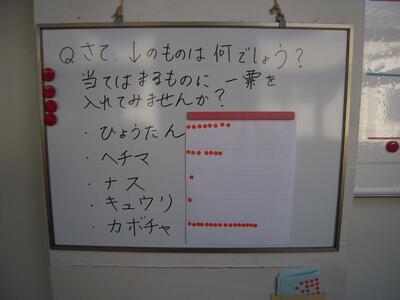 Q さて、↓のものは何でしょう?
当てはまるものに一票を
入れてみませんか?
・ひょうたん
・ヘチマ
・ナス
・キュウリ
・カボチャ